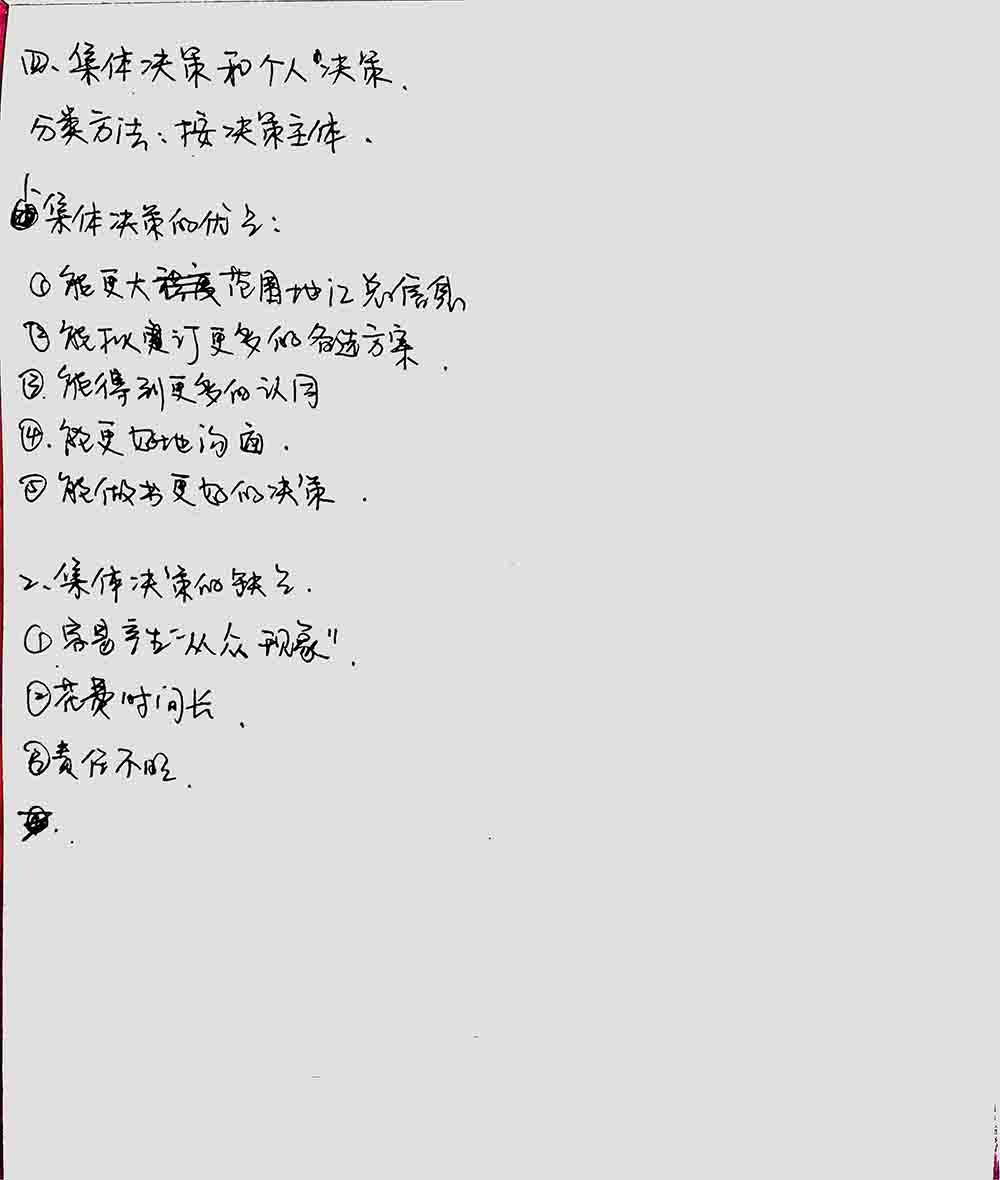 四、集体决策和个人决策.
分类方法：按决策主体.
1、集体决策的优点：
①能更大范围地汇总信息
②能拟订更多的备选方案.
③.能得到更多的认同
④.能更好地沟通.
⑤能做出更好的决策.
2、集体决策的缺点.
①容易产生“从众现象”.
②花费时间长.
③责任不明.